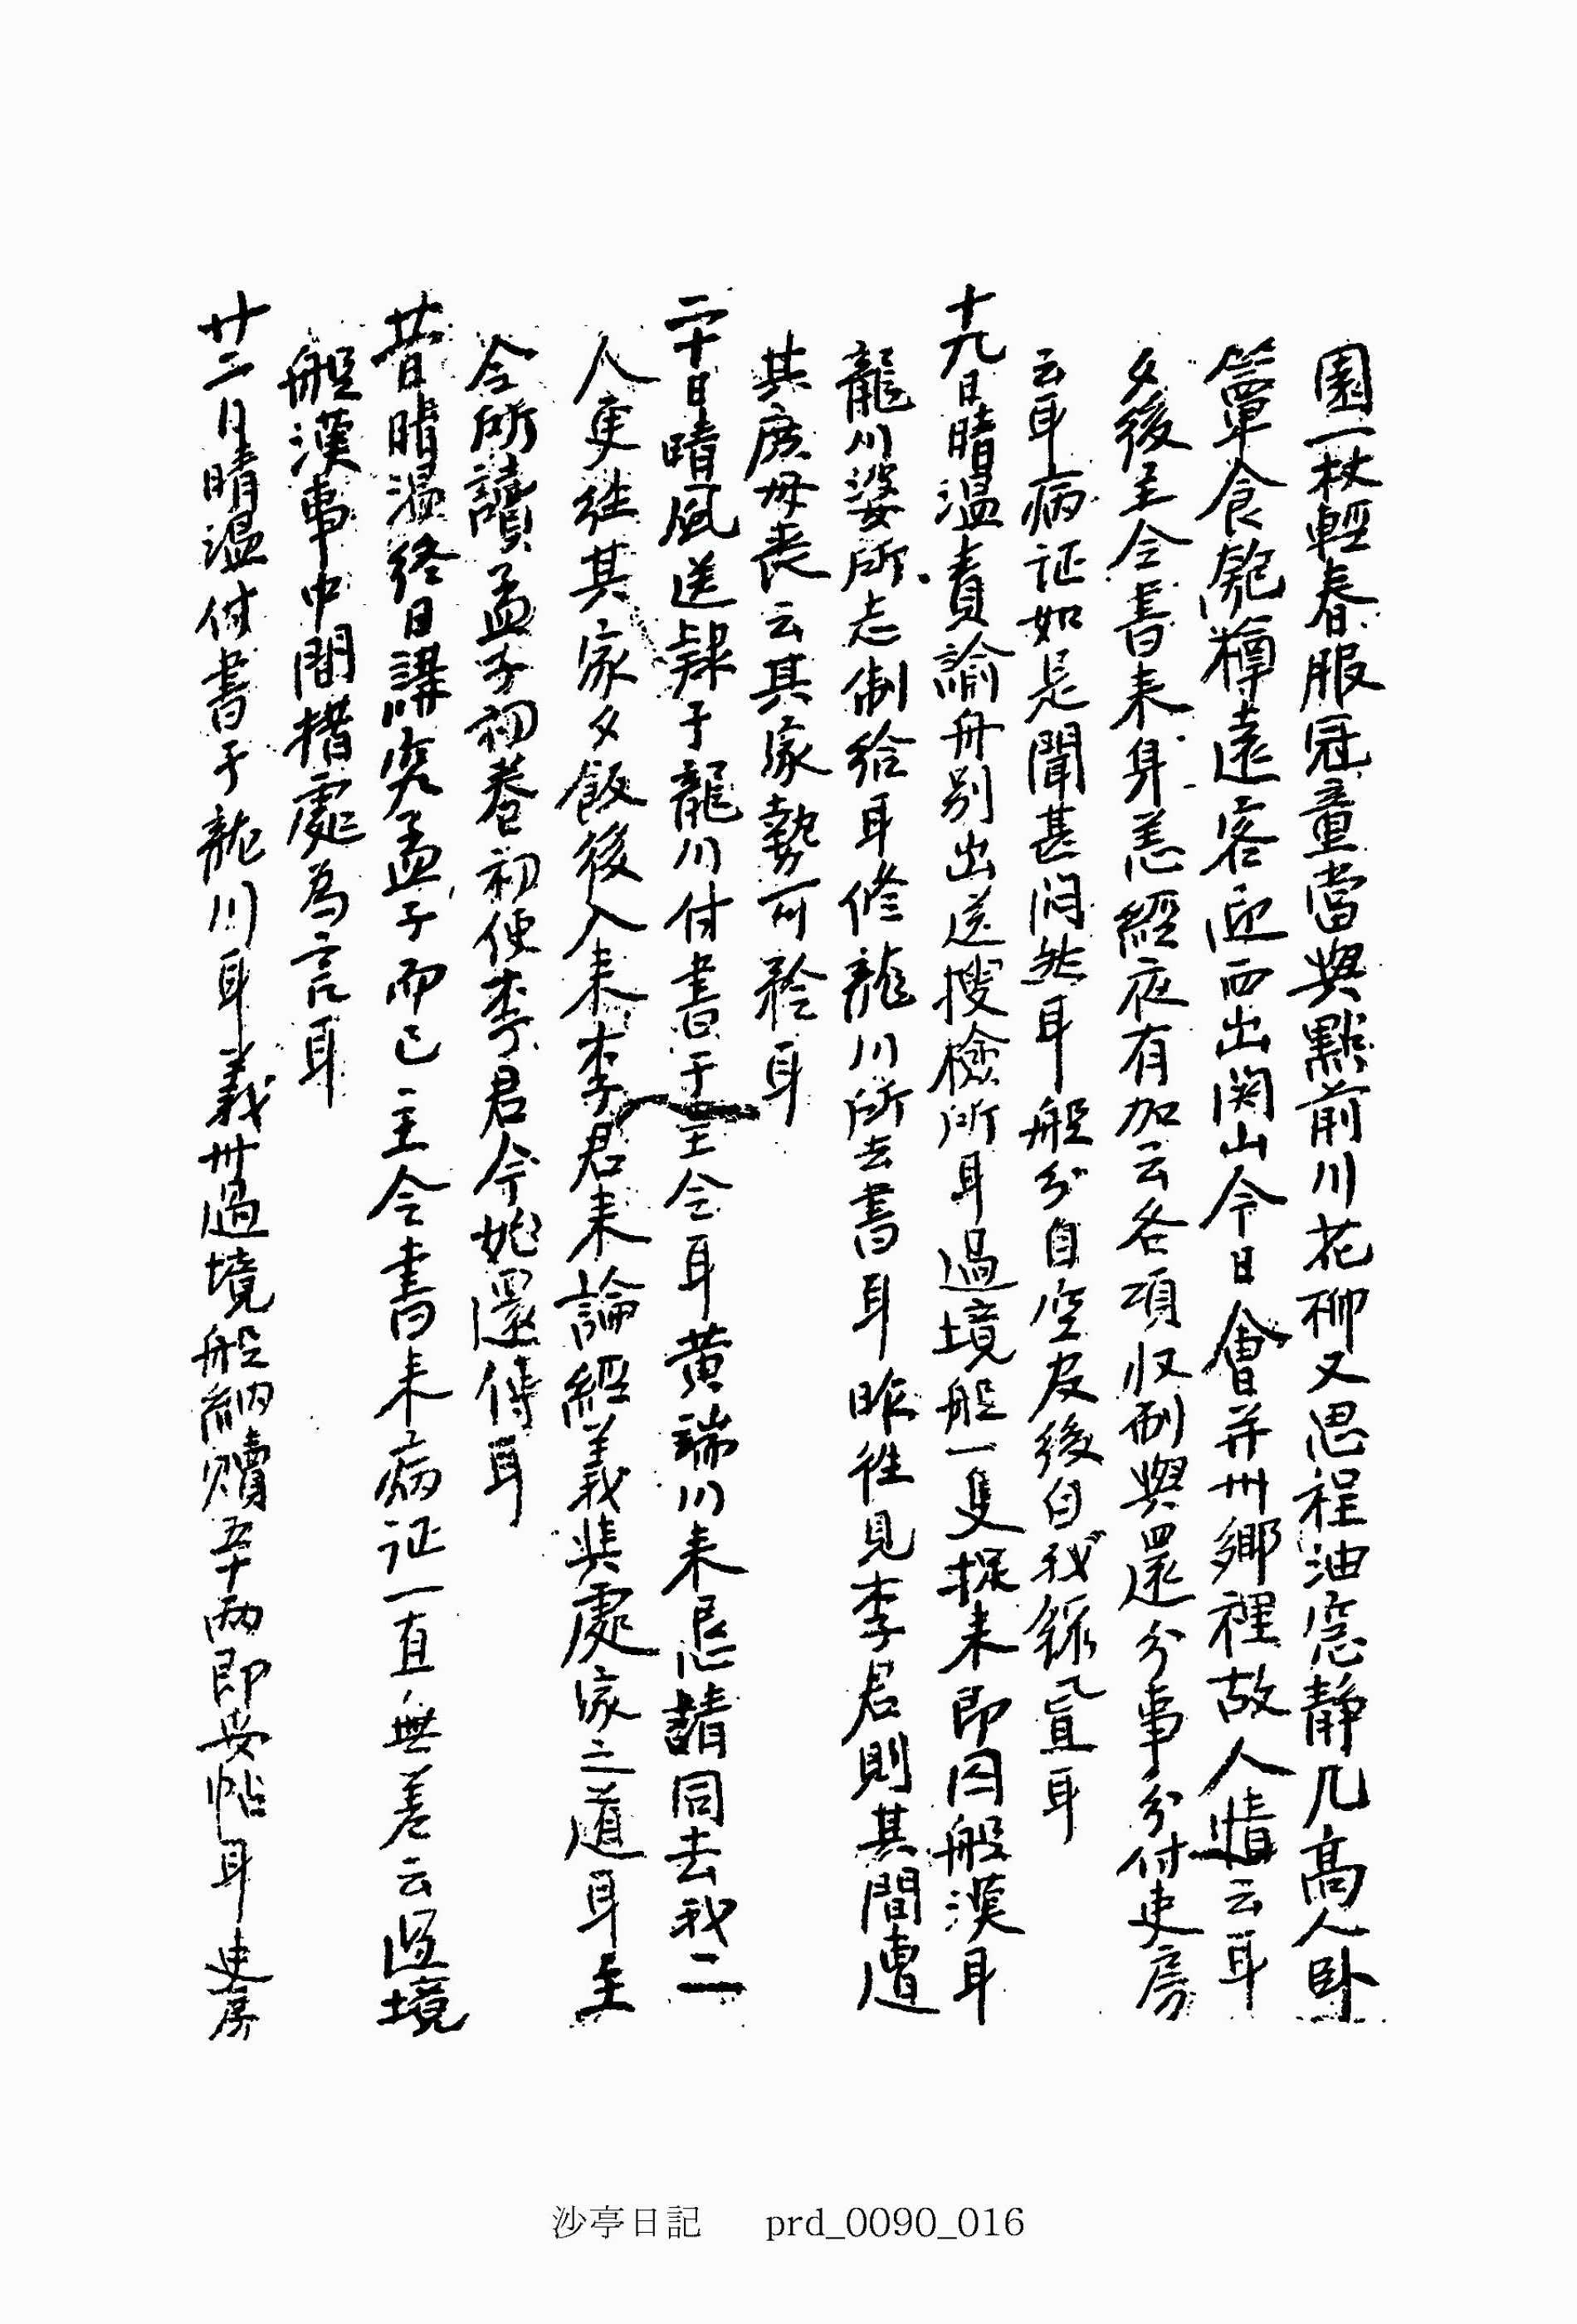 園一杖輕春服冠童當與點前川花柳又思程油窓静几高人卧
簟食匏樽遠客迎西出関山今日會并州鄉裡故人情云耳
夕後主令書来身恙經夜有加云各項収刷與還分事分付吏房
云耳病証如是聞甚悶然耳船分自空皮後自我錄置耳
十九日晴温責諭舟別出送搜檢所耳過境船一隻捉来即囚船漢耳
龍川婆所志制給耳修龍川所去書耳昨往見李君則其間遭
其庶母丧云其家勢可矜耳
二十日晴風送隷于龍川付書于主令耳黄端川来懇請同去我二
人更往其家夕飯後入来李君来論經義與處家之道耳主
令所讀孟子初卷初使李君今始還傳耳
廿一日晴温終日講究孟子而已主令書来病証一直無差云過境
船漢事中間措處為言耳
廿二日晴温付書于龍川耳義州過境船納贖五十兩即妥帖耳吏房
沙亭日記 prd_0090_016